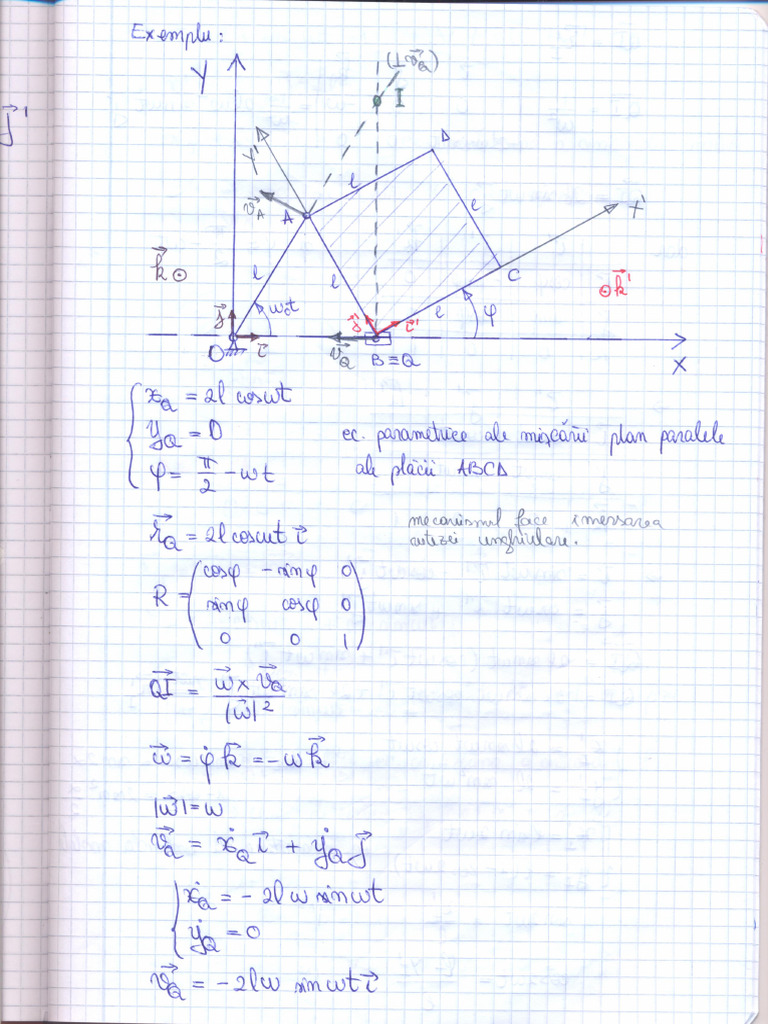 Exemplu:
(⊥v⃗Q)
Y
I
j⃗'
Y'
D
l
v⃗A
A
l
X'
k⃗ ⊙
l
l
C
⊙k⃗'
j⃗
ω₀t
j⃗'
i⃗'
l
φ
O
i⃗
v⃗Q
B≡Q
X
xQ = 2l cosωt
yQ = 0 ec. parametrice ale mişcării plan paralele
φ = π/2 - ωt ale plăcii ABCD
r⃗Q = 2l cosωt i⃗ mecanismul face inversarea
vitezei unghiulare.
cosφ -sinφ 0
R = sinφ cosφ 0
0 0 1
Q⃗I = ω⃗ x v⃗Q / |ω⃗|²
ω⃗ = φ̇ k⃗ = -ω k⃗
|ω⃗| = ω
v⃗Q = ẋQ i⃗ + ẏQ j⃗
ẋQ = - 2l ω sinωt
ẏQ = 0
v⃗Q = -2lω sinωt i⃗